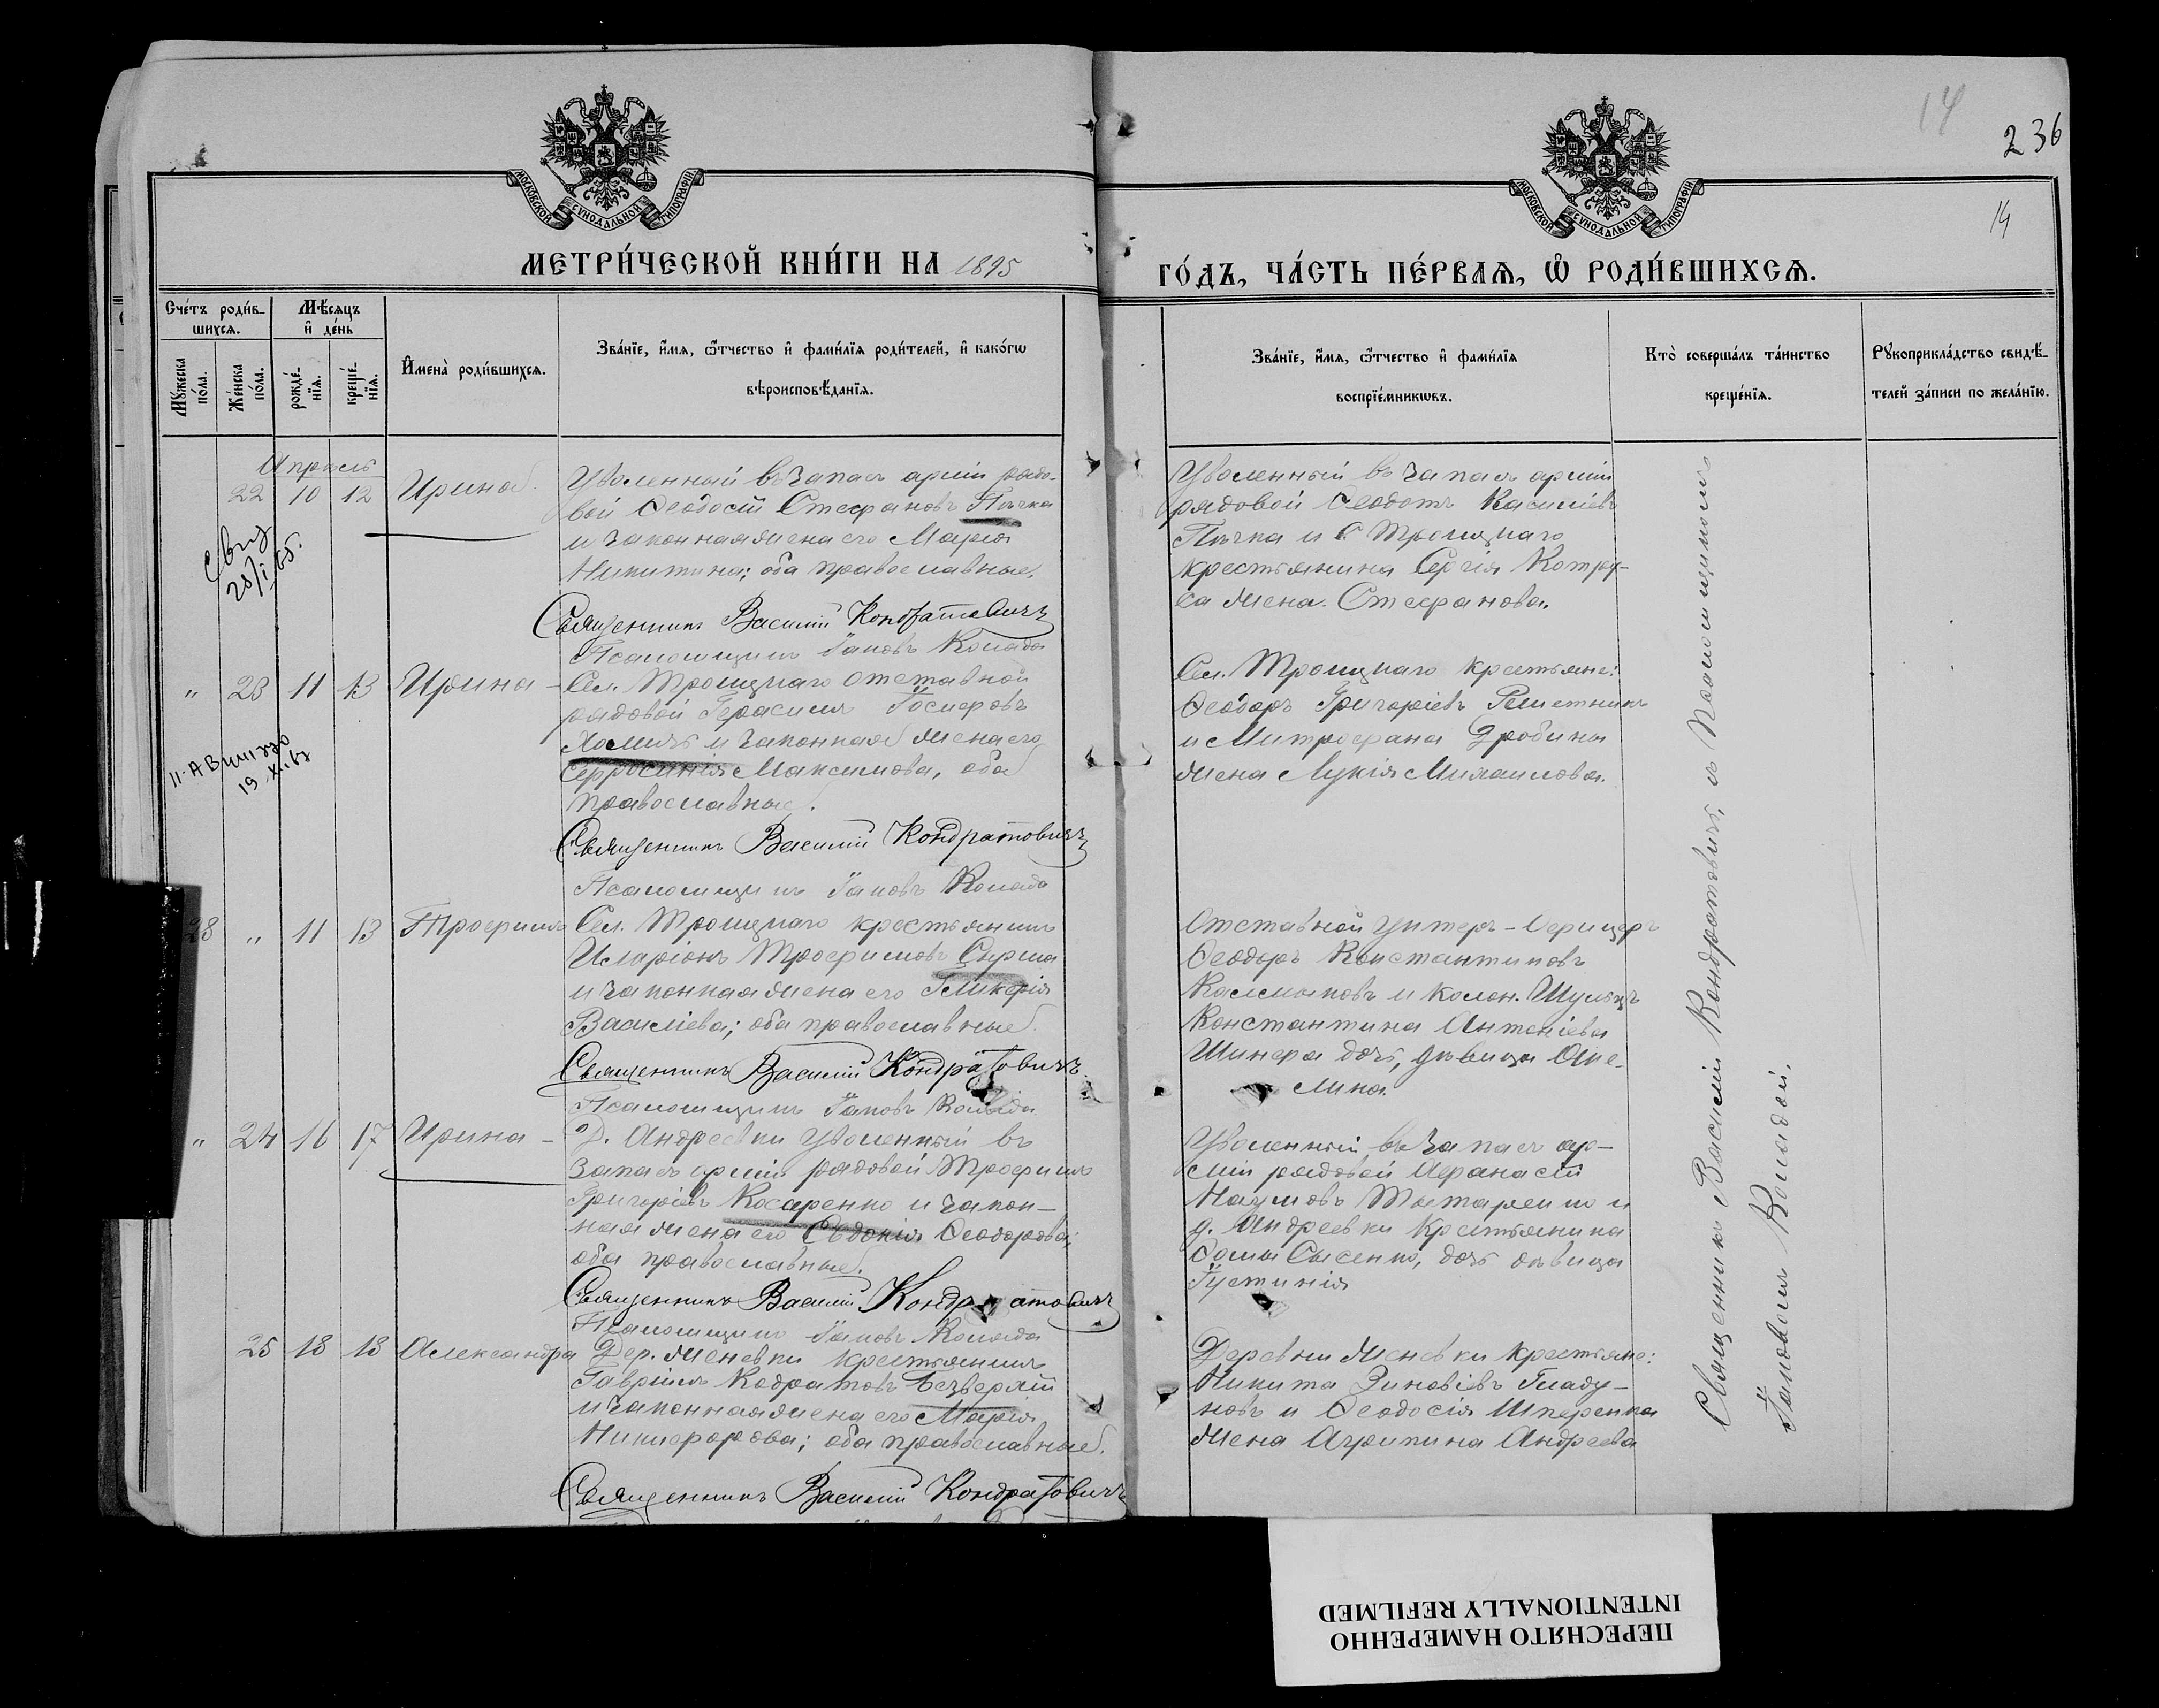 14
236
14
МОСКОВСКОЙ СѴНОДАЛЬНОЙ ТИПОГРАФІИ
МОСКОВСКОЙ СѴНОДАЛЬНОЙ ТИПОГРАФІИ
МЕТРИ́ЧЕСКОЙ КНИ́ГИ НА 1895
ГО́ДЪ, ЧА́СТЬ ПЕ́РВАѦ, Ѡ РОДИ́ВШИХСѦ.
Сче́тъ роди́в-
шихся.
Мѣсяцъ
и де́нь
Му́жеска
по́ла.
Же́нска
по́ла.
рожде́-
нїя.
креще́-
нїя.
Имена̀ роди́вшихся.
Зва́нїе, и́мя, ѻ҆́тчество и фами́лїя роди́телей, и како́гѡ
вѣроисповѣ́данїя.
Зва́нїе, и́мя, ѻ҆́тчество и фами́лїя
воспрїе́мникѡвъ.
Кто̀ соверша́лъ та́инство
креще́нїя.
Рукоприкла́дство свидѣ́-
телей за́писи по жела́нїю.
Апрѣль
22 10 12 Ирина
Уволенный въ запасъ арміи рядо-
вой Ѳеодосій Стефановъ Пѣчка
и законная жена его Марія
Никитина; оба православные.
Священникъ Василій Кондратовичъ
Псаломщикъ Іаковъ Коляда
Уволенный въ запасъ арміи
рядовой Ѳеодотъ Касиміевъ
Пѣчка и с Троицкаго
крестьянина Сергія Котру-
са жена Стефанова.
28/I 65.
" 23 11 13 Ирина -
Сел. Троицкаго отставной
рядовой Герасимъ Іосифовъ
Хомичъ и законная жена его
Ефросинія Максимова, оба
православные.
Священникъ Василій Кондратовичъ
Псаломщикъ Іаковъ Коляда
Сел. Троицкаго крестьяне:
Ѳеодоръ Григоріевъ Решетникъ
и Митрофана Дробина
жена Лукія Михаилова.
19 XI 63
28 " 11 13 Трофимъ
Сел. Троицкаго крестьянинъ
Иларіонъ Трофимовъ Сирма
и законная жена его Гликерія
Василіева; оба православные.
Священникъ Василій Кондратовичъ
Псаломщикъ Іаковъ Коляда
Отставной Унтеръ-Офицеръ
Ѳеодоръ Константиновъ
Калмыковъ и колон. Шульцъ
Константина Антоніева
Шинера дочь, дѣвица Оме-
лина.
" 24 16 17 Ирина -
Д. Андреевки Уволенный въ
запасъ арміи рядовой Трофимъ
Григоріевъ Косаренко и закон-
ная жена его Евдокія Ѳеодорова;
оба православные.
Священникъ Василій Кондратовичъ
Псаломщикъ Іаковъ Коляда
Уволенный въ запасъ ар-
міи рядовой Аѳанасій
Наумовъ Татаренко и
д. Андреевки крестьянина
Ѳомы Сысенко, дочь дѣвица
Іустинія
25 18 18 Александра
Дер. Женевки крестьянинъ
Гавріилъ Кодратовъ Безверхій
и законная жена его Марія
Никифорова; оба православные.
Священникъ Василій Кондратовичъ
Деревни Женевки крестьяне:
Никита Зиновіевъ Гладу-
новъ и Ѳеодосія Шперенка
жена Агрипина Андреева
Священникъ Василій Кондратовичъ, съ Псаломщикомъ
Іаковомъ Колядой.
ПЕРЕСНЯТО НАМЕРЕННО
INTENTIONALLY REFILMED